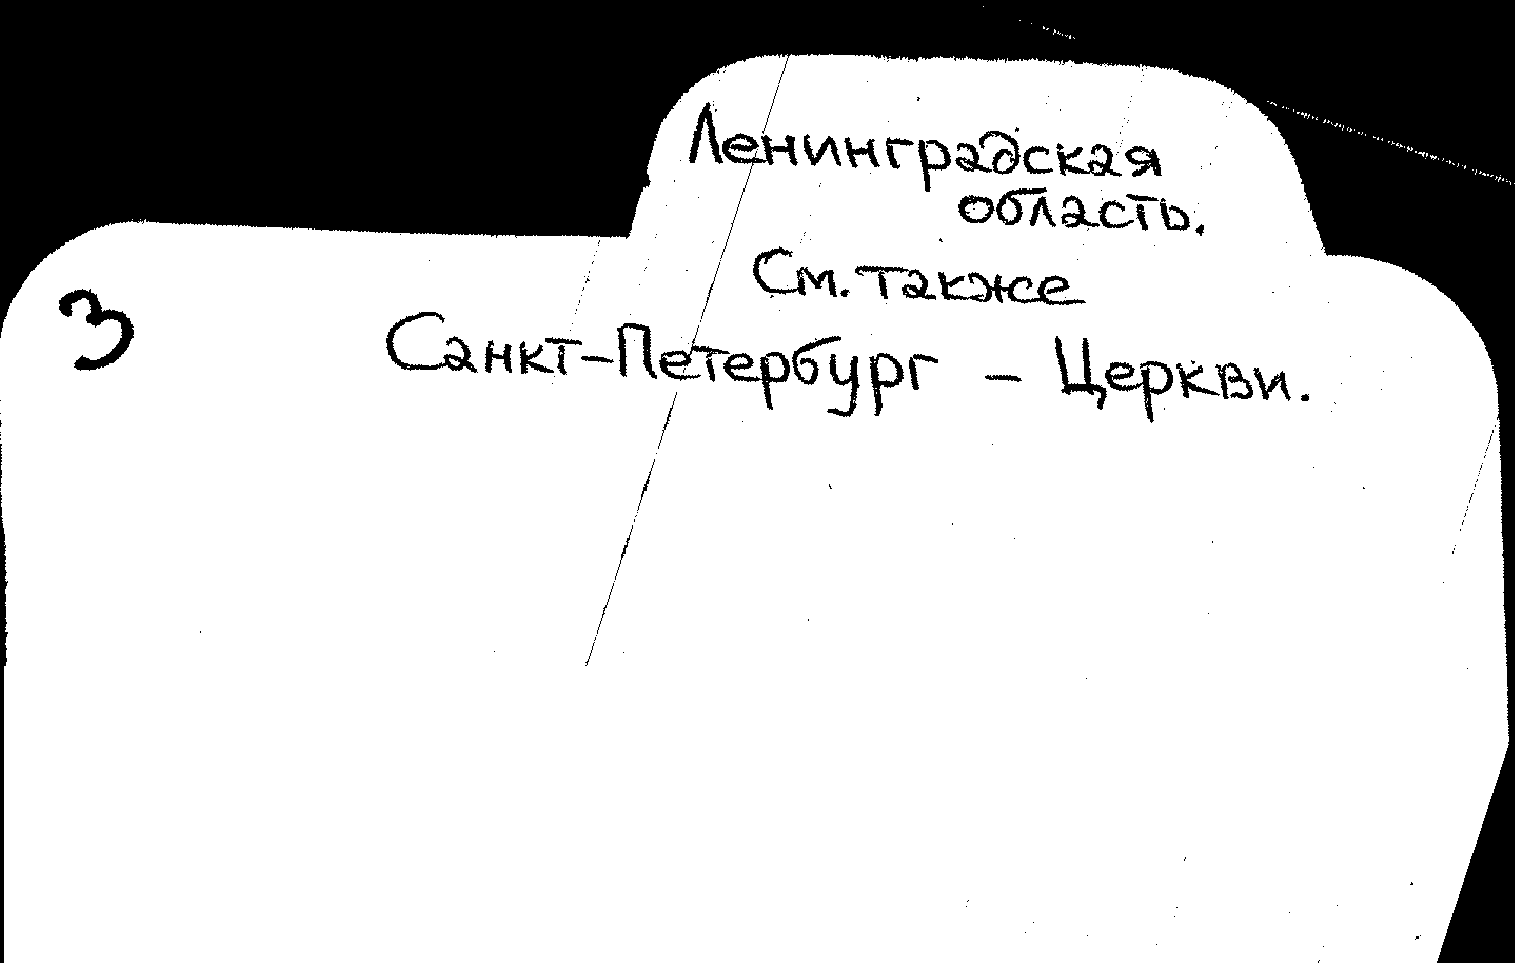 Ленинградская
область.
См. также
3
Санкт-Петербург – Церкви.